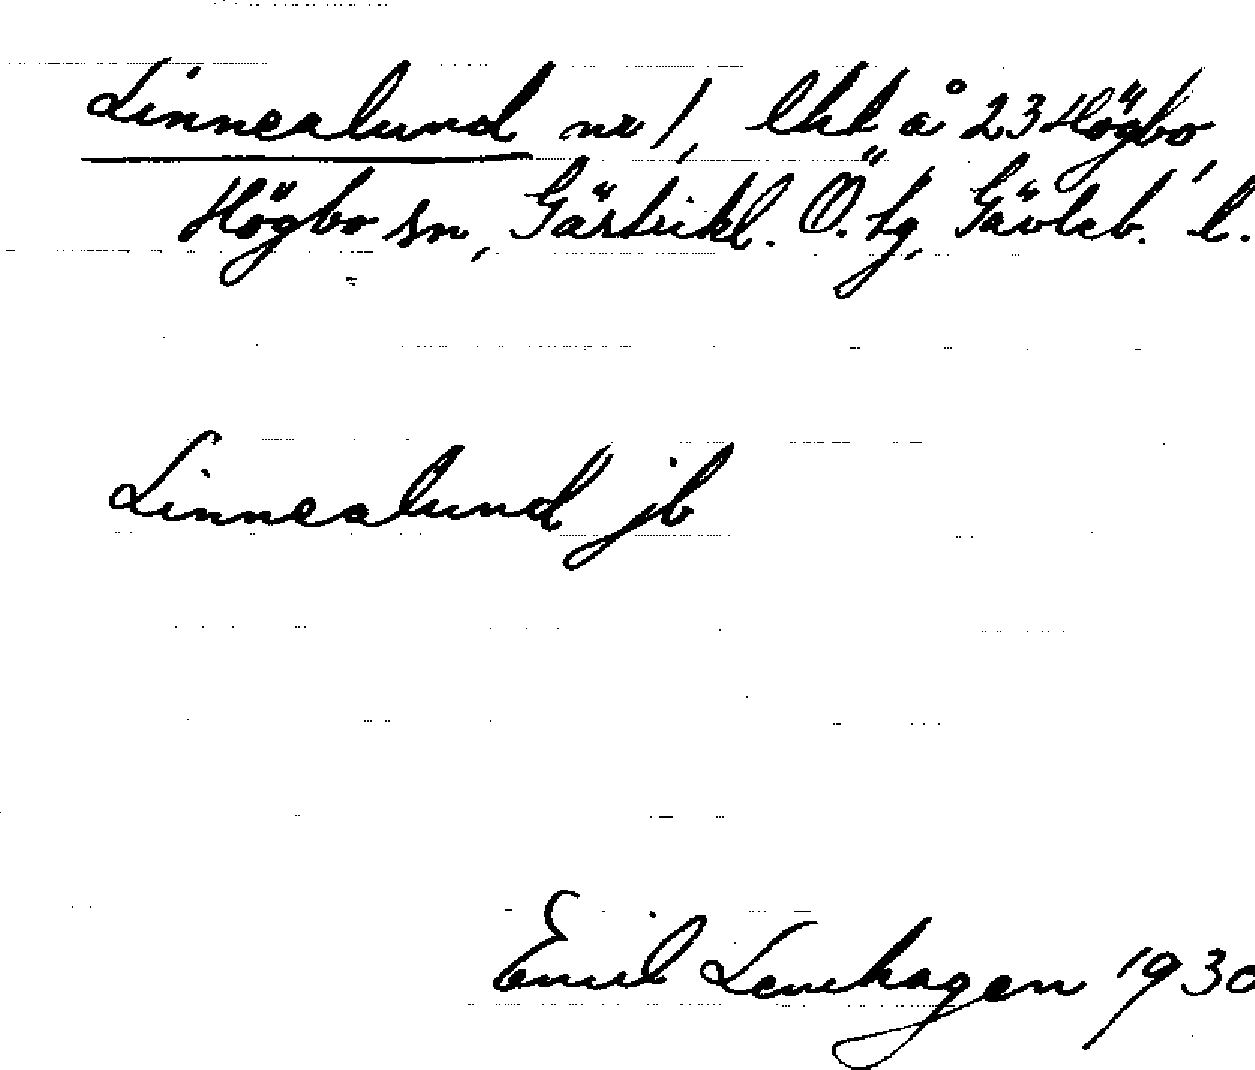 Linnealund nr 1, lht å 23 Högbo
Högbo sn, Gästrikl. Ö. tg, Gävleb. l.
Linnealund jb
Emil Lenhagen 1930